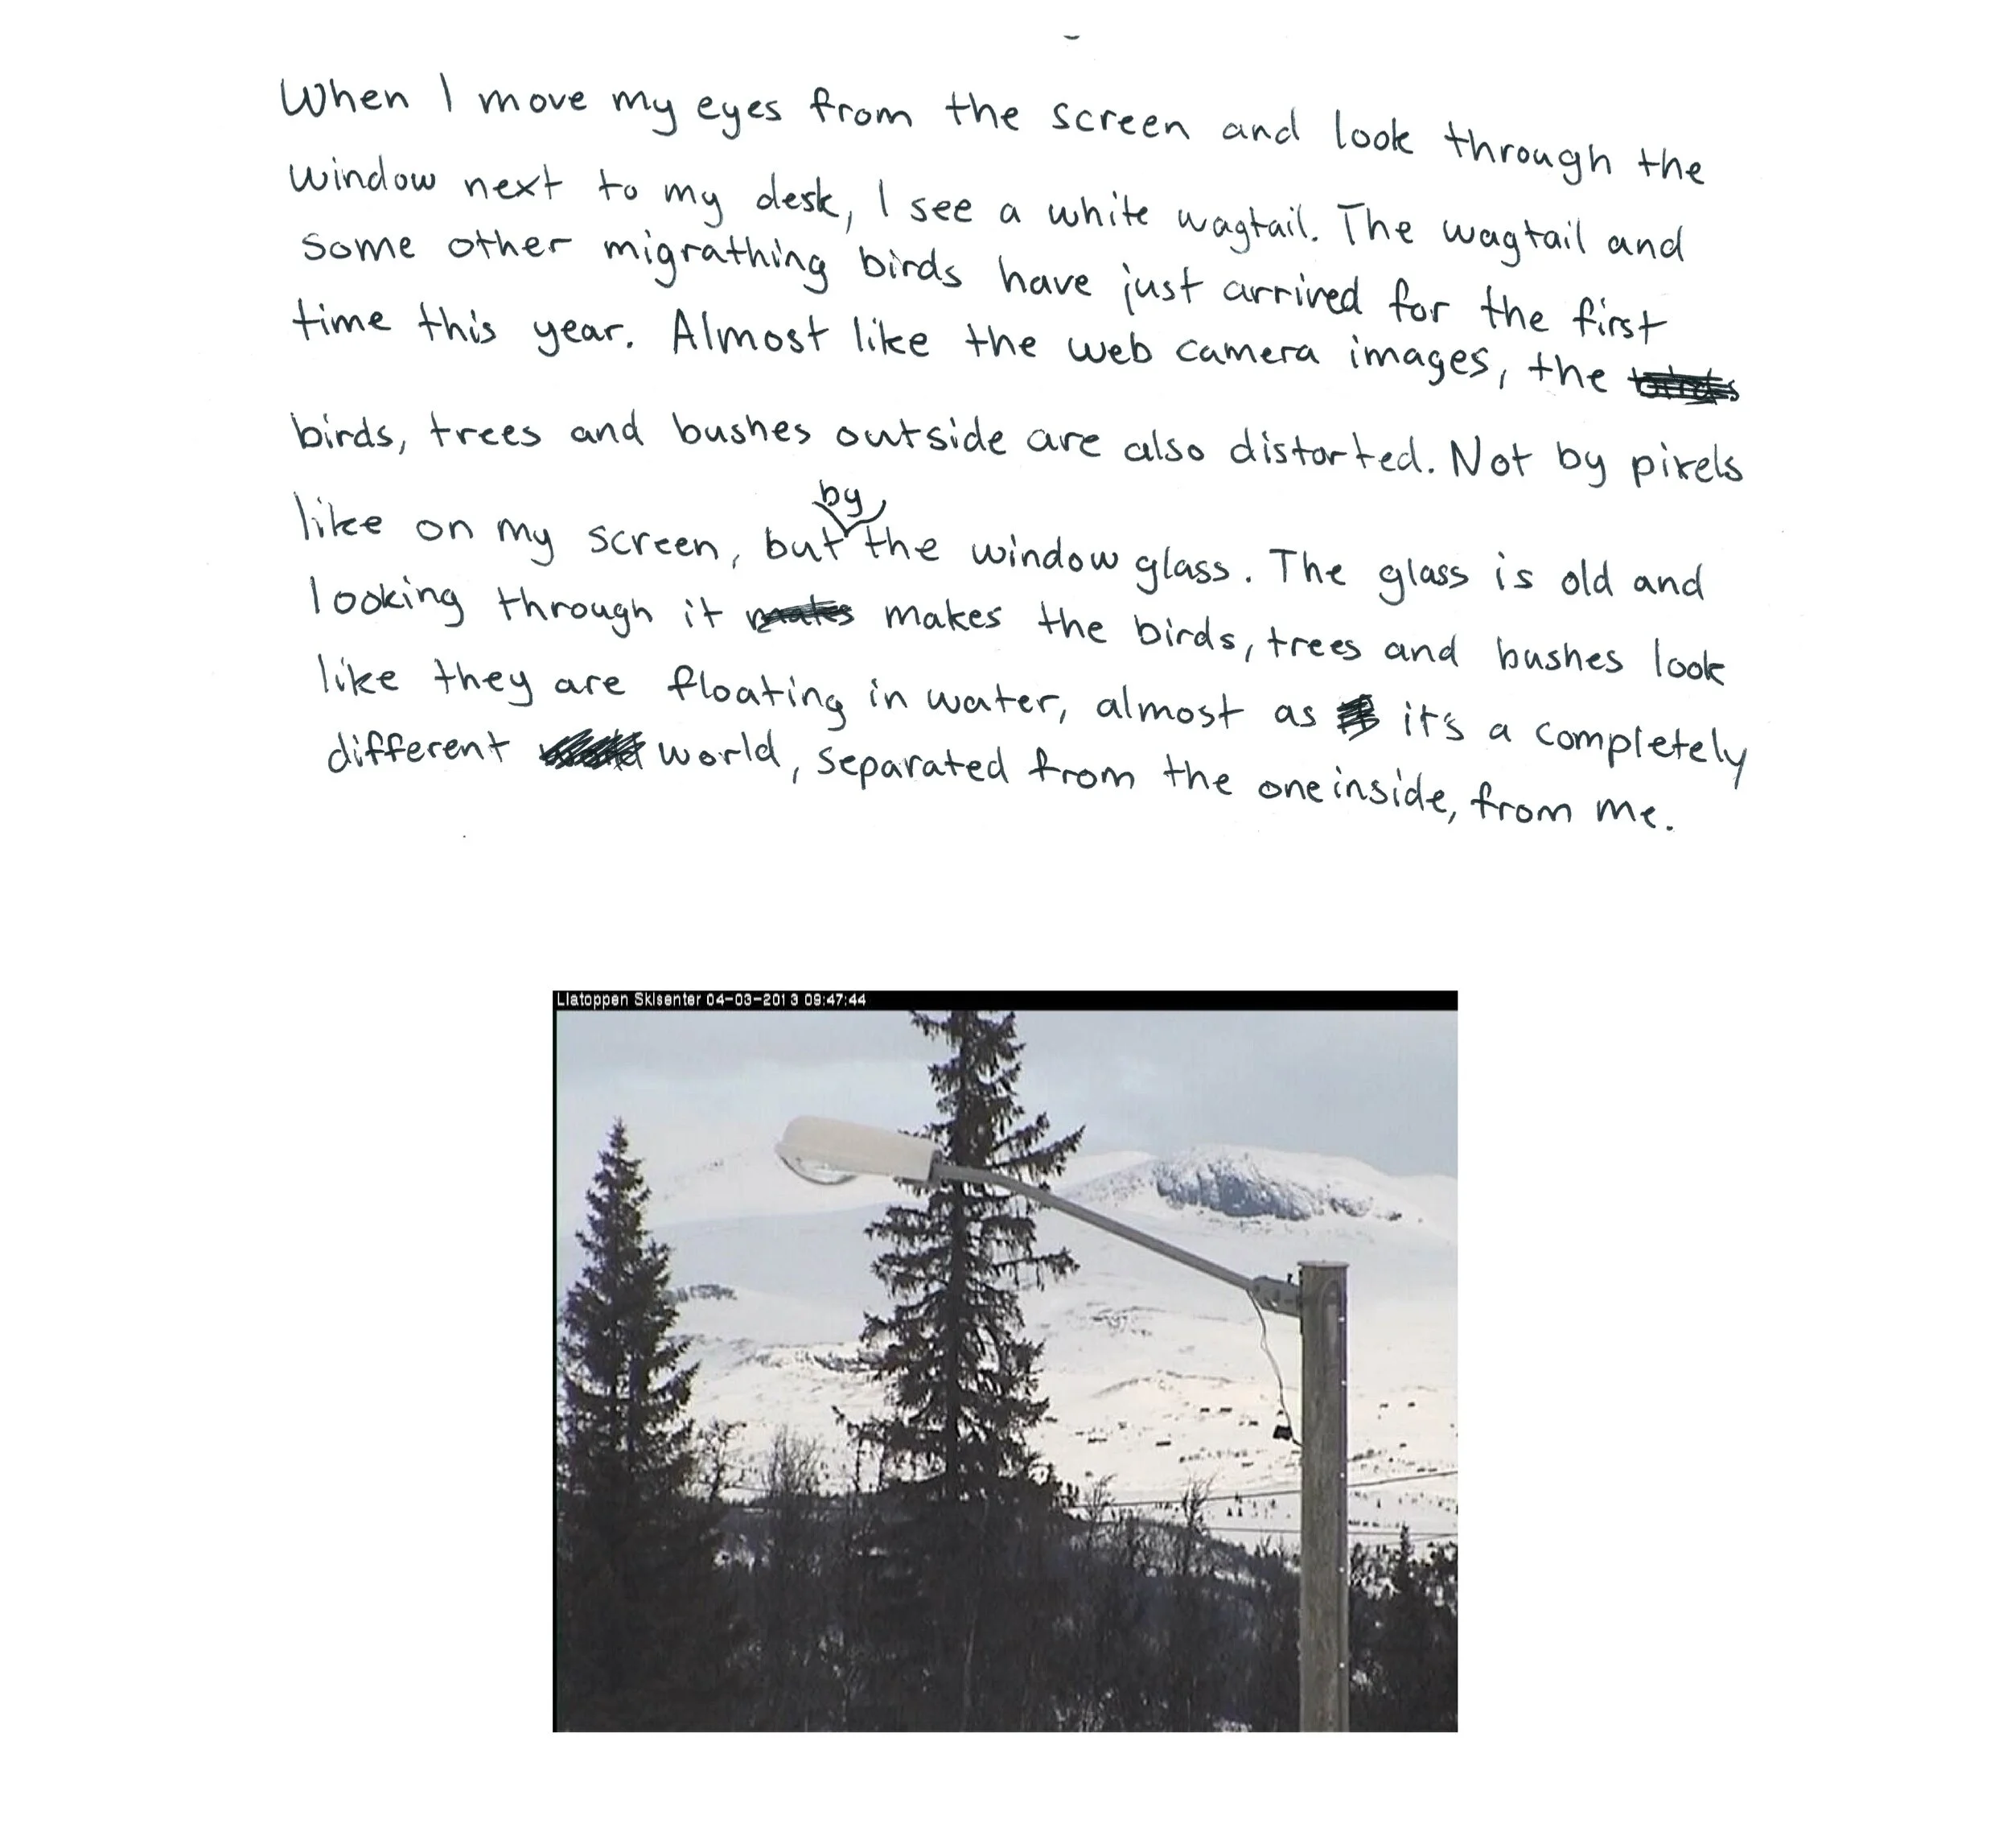 When I move my eyes from the screen and look through the
window next to my desk, I see a white wagtail. The wagtail and
some other migrathing birds have just arrived for the first
time this year. Almost like the web camera images, the birds
birds, trees and bushes outside are also distorted. Not by pixels
like on my screen, but by the window glass. The glass is old and
looking through it makes the birds, trees and bushes look
like they are floating in water, almost as it's a completely
different world, separated from the one inside, from me.
Liatoppen Skisenter 04-03-2013 09:47:44